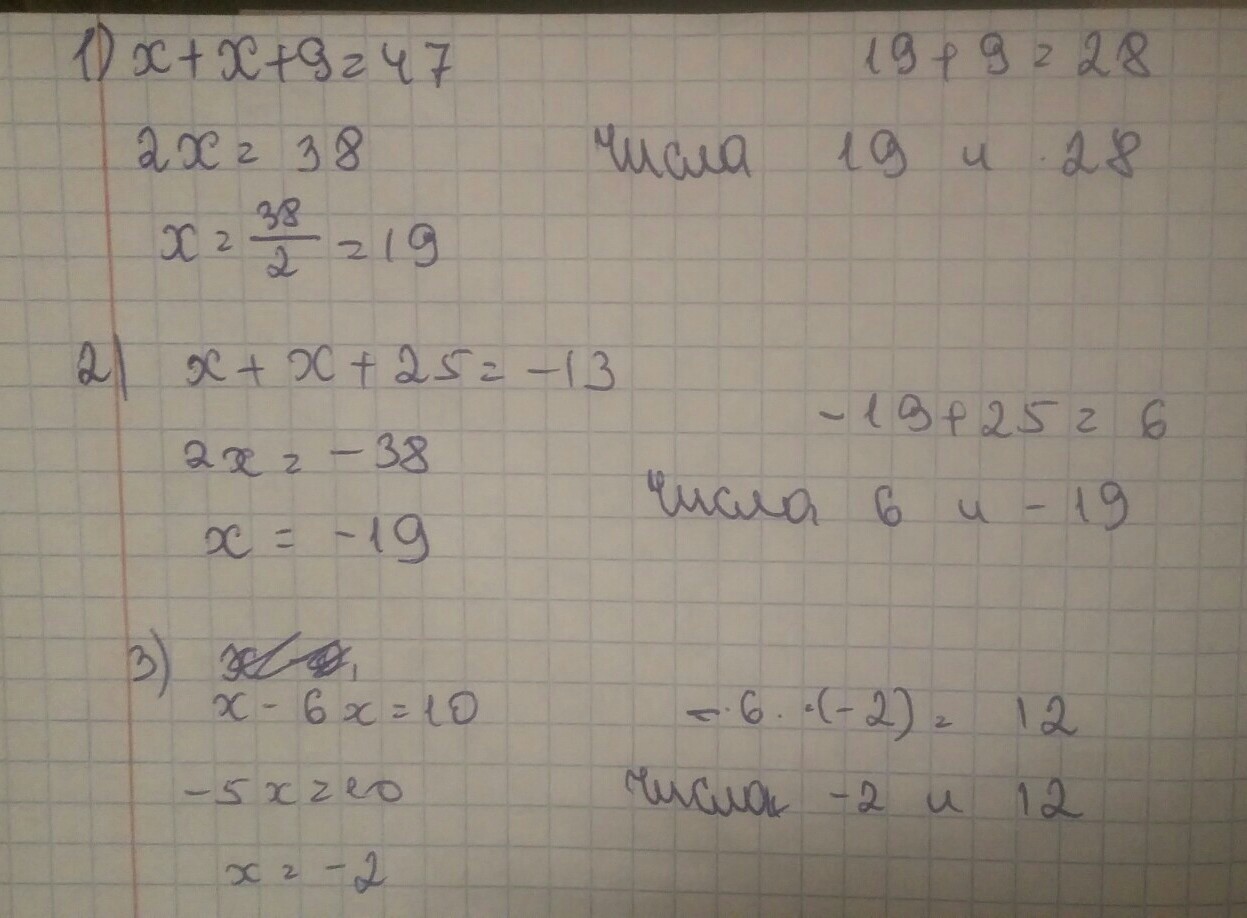 1) x+x+9=47 19+9=28
2x=38 Числа 19 и 28
x=38/2=19
2) x+x+25=-13
-19+25=6
2x=-38
Числа 6 и -19
x=-19
3)
x-6x=10 -6·(-2)=12
-5x=10 Числа -2 и 12
x=-2